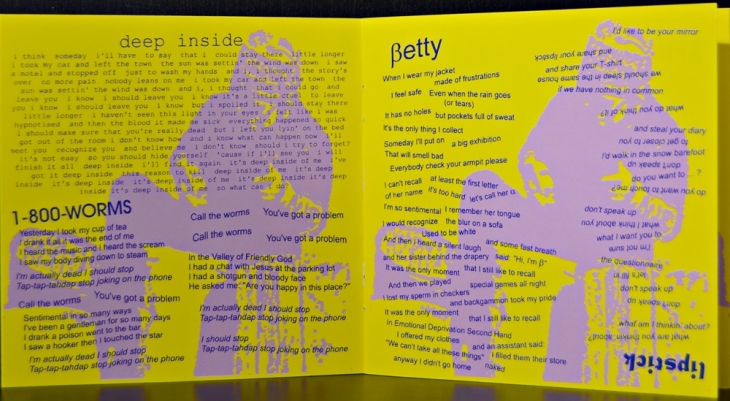 deep inside
i think someday i'll have to say that i could stay there little longer
i took my car and left the town the sun was settin' the wind was down i saw
a motel and stopped off just to wash my hands and I, i thought the story's
over no more pain nobody leans on me i took my car and left the town the
sun was settin' the wind was down and i, i thought that i could go and
leave you i know i should leave you i know it's a little cruel to leave
you i know i should leave you i know but i spoiled it should stay there
little longer i haven't seen this light in your eyes i felt like i was
hypnotised and then the blood it made me sick everything happened so quick
i should make sure that you're really dead but i left you lyin' on the bed
got out of the room i don't know how and i know what can happen now i'll
meet you recognize you and believe me i don't know should i try to forget?
it's not easy do you should hide yourself 'cause if i'll see you i will
finish it all deep inside i'll find it again it's deep inside of me i've
got it deep inside this reason to kill deep inside of me it's deep
inside it's deep inside of me it's deep inside of me it's deep inside it's deep
inside it's deep inside of me so what can i do?
1-800-WORMS
Yesterday I took my cup of tea
I drank it all it was the end of me
I heard the music and I heard the scream
I saw my body diving down to steam
I'm actually dead I should stop
Tap-tap-tahdap stop joking on the phone
Call the worms You've got a problem
Sentimental in so many ways
I've been a gentleman for so many days
I drank a poison went to the bar
I saw a hooker then I touched the star
I'm actually dead I should stop
Tap-tap-tahdap stop joking on the phone
Call the worms You've got a problem
Call the worms You've got a problem
In the Valley of Friendly God
I had a chat with Jesus at the parking lot
I had a shotgun and bloody face
He asked me: "Are you happy in this place?"
I'm actually dead I should stop
Tap-tap-tahdap stop joking on the phone
I should stop
Tap-tap-tahdap stop joking on the phone
βetty
When I wear my jacket
made of frustrations
I feel safe Even when the rain goes
(or tears)
It has no holes but pockets full of sweat
It's the only thing I collect
Someday I'll put on a big exhibition
That will smell bad
Everybody check your armpit please
I can't recall at least the first letter
of her name it's too hard let's call her α
I'm so sentimental I remember her tongue
I would recognize the blur on a sofa
Used to be white
And then i heard a silent laugh and some fast breath
and her sister behind the drapery said: "Hi, I'm β"
It was the only moment that i still like to recall
And then we played special games all night
I lost my sperm in checkers
and backgammon took my pride
It was the only moment that i still like to recall
In Emotional Deprivation Second Hand
I offered my clothes and an assistant said:
"We can't take all these things" I filled them their store
anyway I didn't go home naked
lipstick
what are you thinkin' about?
what am I thinkin' about?
don't speak up
don't speak up
let's fill in
the questionnaire
aims you aim
what I want you to
what I think about you
don't speak up
do you want to tell about me?
do you want to ... ?
don't speak up
I'd walk in the snow barefoot
to get closer to you
and steal your diary
what do you think of it?
if we have nothing in common
we should sleep in the same house
and share your T-shirt
and smear your lipstick
I'd like to be your mirror